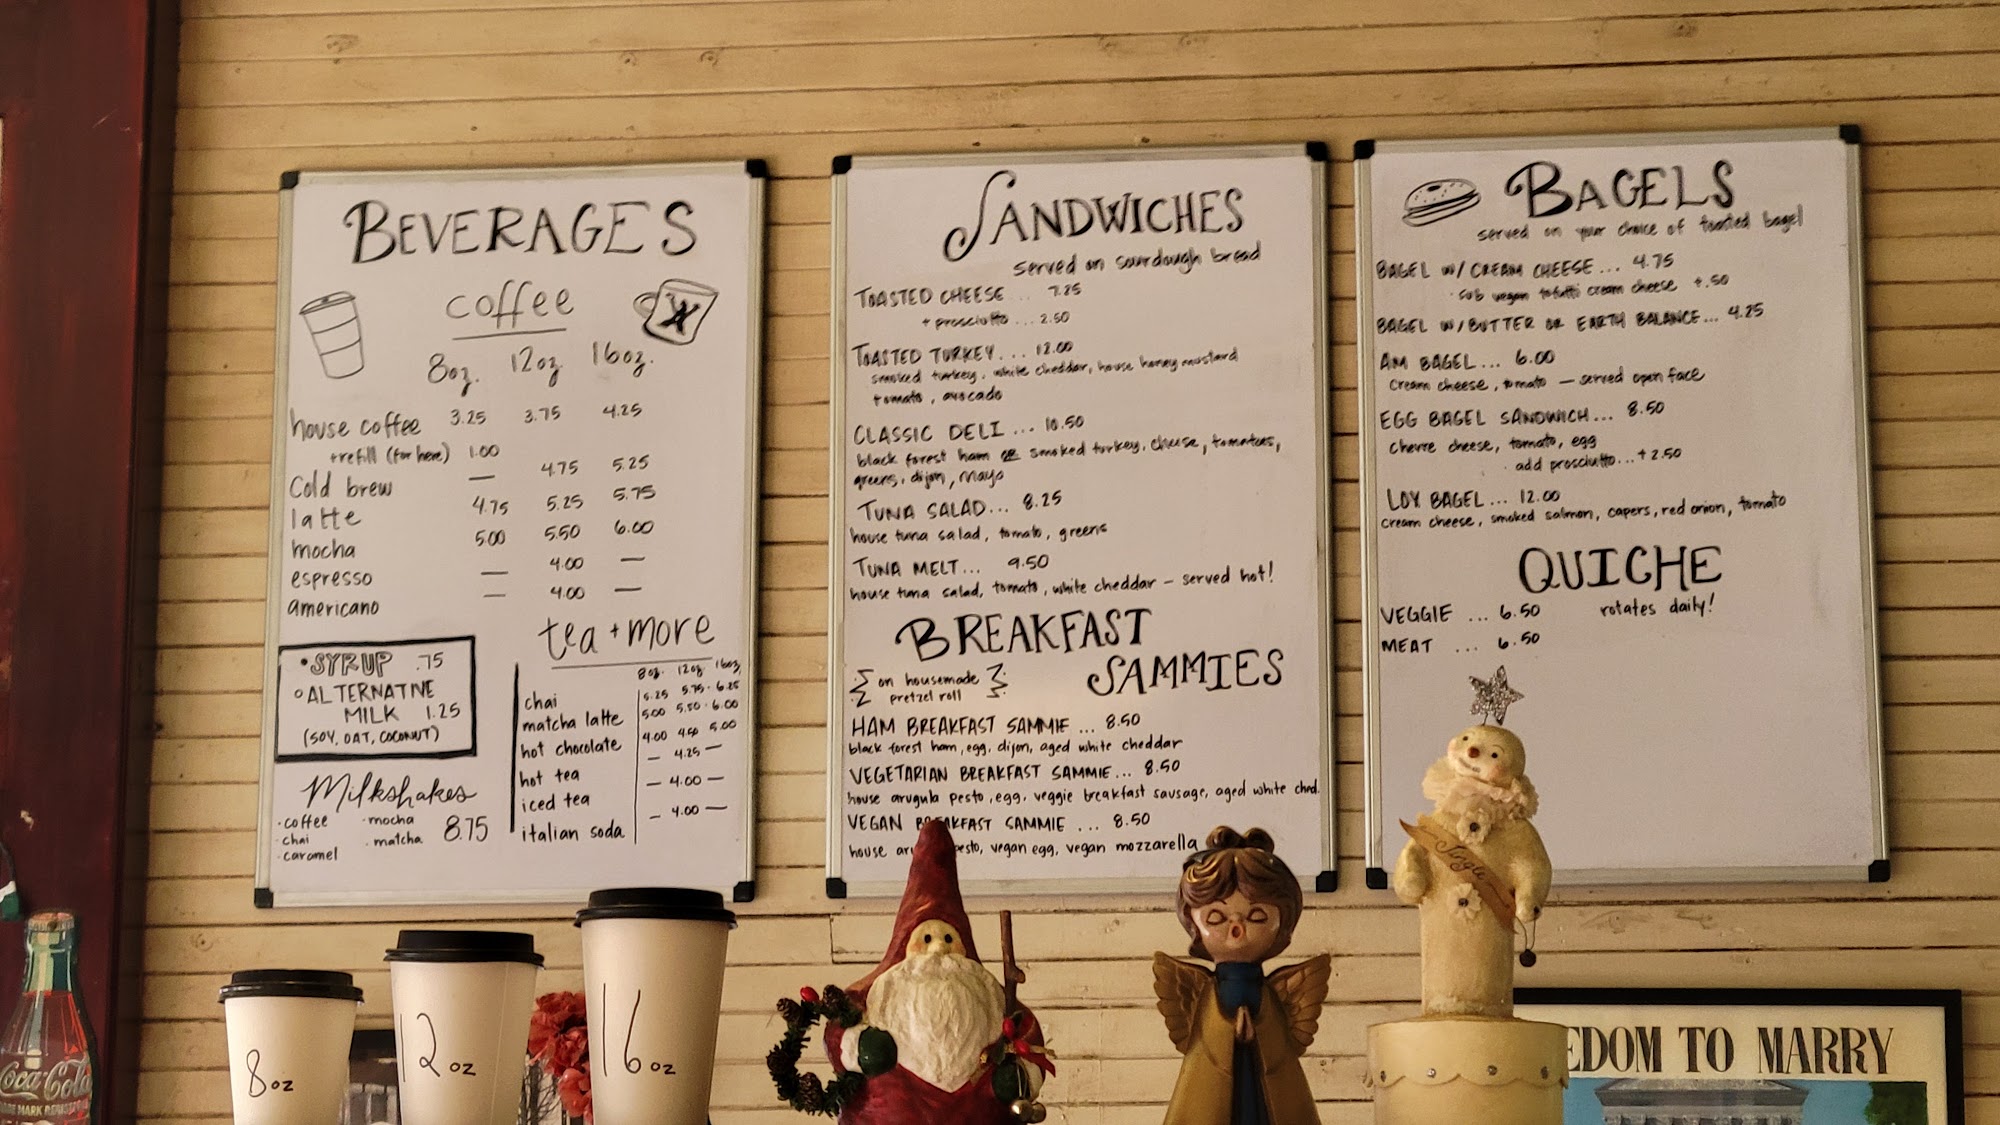 BEVERAGES
coffee
8oz. 12oz 16oz.
house coffee 3.25 3.75 4.25
+refill (for here) 1.00
Cold brew — 4.75 5.25
latte 4.75 5.25 5.75
mocha 5.00 5.50 6.00
espresso — 4.00 —
americano — 4.00 —
• SYRUP .75
ALTERNATIVE
MILK 1.25
(SOY, OAT, COCONUT)
Milkshakes
· coffee · mocha
· chai · matcha 8.75
· caramel
tea + more
8oz. 12oz. 16oz.
chai 5.25 5.75 · 6.25
matcha latte 5.00 5.50 · 6.00
hot chocolate 4.00 4.50 5.00
hot tea — 4.25 —
iced tea — 4.00 —
italian soda — 4.00 —
SANDWICHES
served on sourdough bread
TOASTED CHEESE ... 7.25
+ prosciutto ... 2.50
TOASTED TURKEY... 12.00
smoked turkey, white cheddar, house honey mustard
tomato, avocado
CLASSIC DELI ... 10.50
black forest ham or smoked turkey, cheese, tomatoes,
greens, dijon, mayo
TUNA SALAD... 8.25
house tuna salad, tomato, greens
TUNA MELT... 9.50
house tuna salad, tomato, white cheddar — served hot!
BREAKFAST
SAMMIES
on housemade
pretzel roll
HAM BREAKFAST SAMMIE ... 8.50
black forest ham, egg, dijon, aged white cheddar
VEGETARIAN BREAKFAST SAMMIE... 8.50
house arugula pesto, egg, veggie breakfast sausage, aged white ched.
VEGAN BREAKFAST SAMMIE ... 8.50
house aru pesto, vegan egg, vegan mozzarella
BAGELS
served on your choice of toasted bagel
BAGEL W/ CREAM CHEESE ... 4.75
· sub vegan tofutti cream cheese +.50
BAGEL W/ BUTTER OR EARTH BALANCE... 4.25
AM BAGEL ... 6.00
cream cheese, tomato — served open face
EGG BAGEL SANDWICH... 8.50
chevre cheese, tomato, egg
· add prosciutto...+2.50
LOX BAGEL... 12.00
cream cheese, smoked salmon, capers, red onion, tomato
QUICHE
VEGGIE ... 6.50 rotates daily!
MEAT ... 6.50
Jingle
8oz
12oz
16oz
Coca-Cola
EDOM TO MARRY